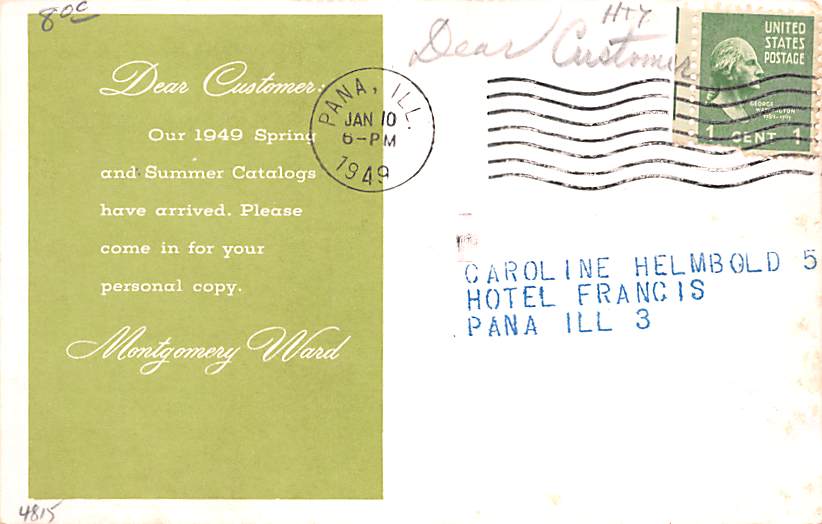 80¢
H+7
Dear Customer
Dear Customer:
Our 1949 Spring
and Summer Catalogs
have arrived. Please
come in for your
personal copy.
Montgomery Ward
PANA, ILL.
JAN 10
6-PM
1949
UNITED
STATES
POSTAGE
GEORGE
WASHINGTON
1 CENT 1
CAROLINE HELMBOLD 5
HOTEL FRANCIS
PANA ILL 3
4815